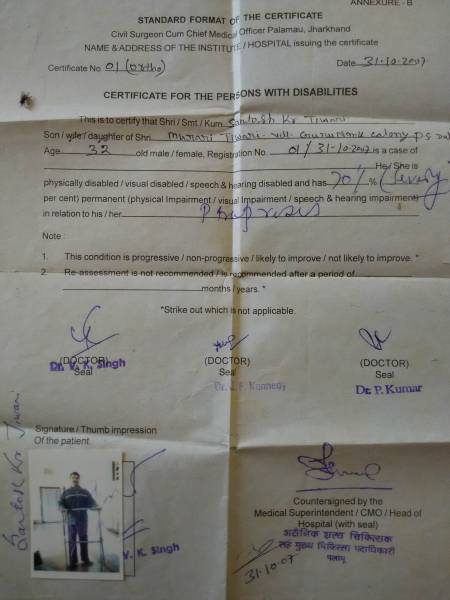 ANNEXURE - B
STANDARD FORMAT OF THE CERTIFICATE
Civil Surgeon Cum Chief Medical Officer Palamau, Jharkhand
NAME & ADDRESS OF THE INSTITUTE / HOSPITAL issuing the certificate
Certificate No. 01 (ortho) Date 31-10-2007
CERTIFICATE FOR THE PERSONS WITH DISABILITIES
This is to certify that Shri / Smt. / Kum. Santosh Kr Tiwari
Son / wife / daughter of Shri Murari Tiwari vill colony P.S
Age 32 old male / female, Registration No. 01 / 31-10-2007 is a case of
He / She is
physically disabled / visual disabled / speech & hearing disabled and has 70% % (Seventy
per cent) permanent (physical Impairment / visual Impairment / speech & hearing impairment)
in relation to his / her
Note :
1. This condition is progressive / non-progressive / likely to improve / not likely to improve. *
2. Re-assessment is not recommended / is recommended after a period of
months / years. *
*Strike out which is not applicable.
(DOCTOR) (DOCTOR) (DOCTOR)
Seal Seal Seal
Dr. V. K. Singh Dr. J. F. Kennedy Dr. P. Kumar
Signature / Thumb impression
Of the patient
Santosh Kr Tiwari
V. K. Singh
Countersigned by the
Medical Superintendent / CMO / Head of
Hospital (with seal)
असैनिक शल्य चिकित्सक
सह मुख्य चिकित्सा पदाधिकारी
पलामू
31.10.07